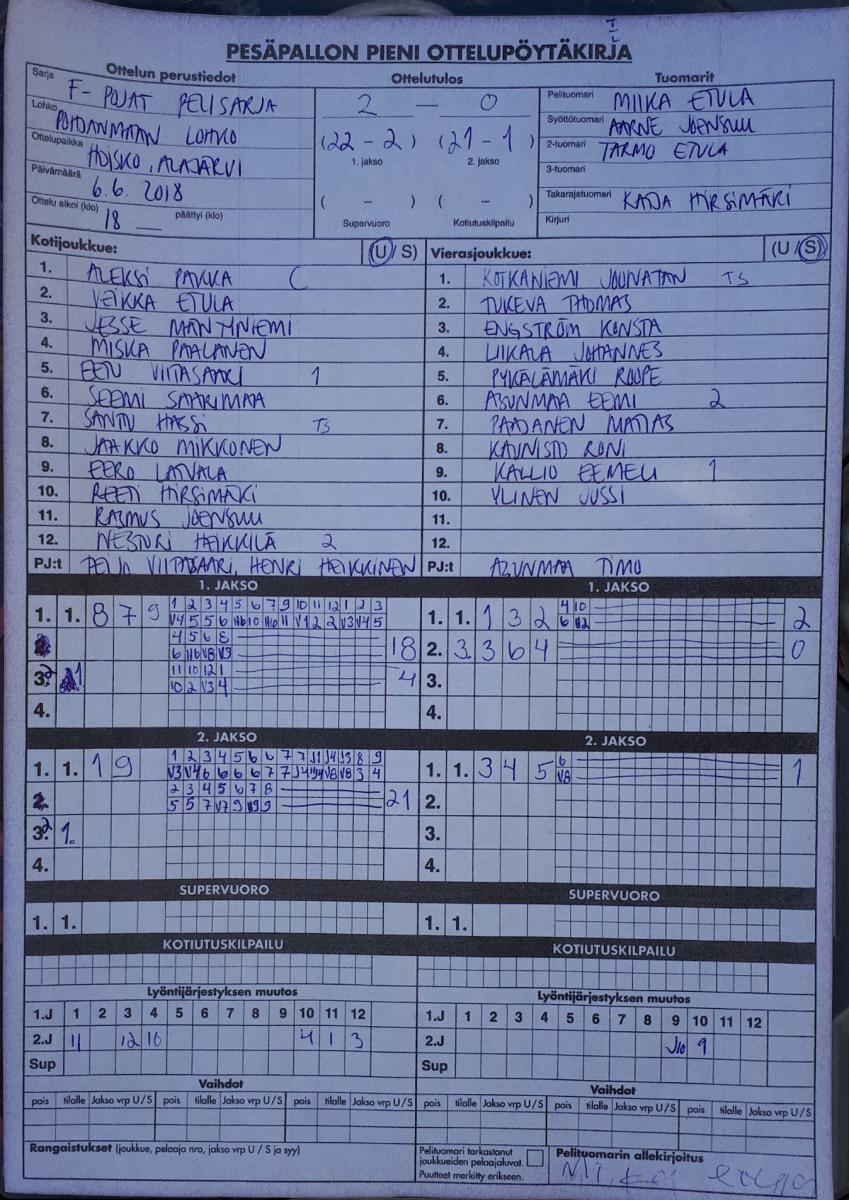 PESÄPALLON PIENI OTTELUPÖYTÄKIRJA
Ottelun perustiedot
Sarja F-POJAT PELISARJA
Lohko POHJANMAAN LOHKO
Ottelupaikka HOISKO, ALAJÄRVI
Päivämäärä 6.6. 2018
Ottelu alkoi (klo) 18 päättyi (klo)
Ottelutulos
2 — 0
(22 - 2) (21 - 1)
1. jakso 2. jakso
( - ) ( - )
Supervuoro Kotiutuskilpailu
Tuomarit
Pelituomari MIIKA ETULA
Syöttötuomari AARNE JOENSUU
2-tuomari TARMO ETULA
3-tuomari
Takarajatuomari KAIJA HIRSIMÄKI
Kirjuri
Kotijoukkue: (U / S)
1. ALEKSI PAVKA C
2. VEIKKA ETULA
3. JESSE MÄNTYNIEMI
4. MISKA PAALANEN
5. EEN VIITASAARI 1
6. SEEMI SAARIMAA
7. SANTU HASSI TS
8. JAAKKO MIKKONEN
9. EERO LATVALA
10. REETI HIRSIMÄKI
11. RASMUS JOENSUU
12. NESTORI HEIKKILÄ 2
PJ:t VIITASAARI, HENRI HEIKKINEN
Vierasjoukkue: (U / S)
1. KOTKANIEMI JOONATAN TS
2. TUKEVA THOMAS
3. ENGSTRÖM KONSTA
4. LIIKALA JOHANNES
5. PYKÄLÄMÄKI ROOPE
6. ASUNMAA EEMI 2
7. PAAJANEN MATIAS
8. KAUNISTO RONI
9. KALLIO EEMELI 1
10. YLINEN JUSSI
11.
12.
PJ:t ASUNMAA TIMO
1. JAKSO
1. 1. 8 7 9 1 2 3 4 5 6 7 9 10 11 12 1 2 3
4 5 6 8
18
11 10 12 1
10 2 V3 4
4
4.
1. JAKSO
1. 1. 1 3 2 4 10 2
2. 3 3 6 4 0
3.
4.
2. JAKSO
1. 1. 1 9
2 3 4 5 6 7 8
21
1.
4.
2. JAKSO
1. 1. 3 4 5 6 1
V8
2.
3.
4.
SUPERVUORO
1. 1.
SUPERVUORO
1. 1.
KOTIUTUSKILPAILU
KOTIUTUSKILPAILU
Lyöntijärjestyksen muutos
1.J 1 2 3 4 5 6 7 8 9 10 11 12
2.J 11 12 10 4 1 3
Sup
Lyöntijärjestyksen muutos
1.J 1 2 3 4 5 6 7 8 9 10 11 12
2.J J10 9
Sup
Vaihdot
pois tilalle Jakso vrp U/S pois tilalle Jakso vrp U/S pois tilalle Jakso vrp U/S
Vaihdot
pois tilalle Jakso vrp U/S pois tilalle Jakso vrp U/S pois tilalle Jakso vrp U/S
Rangaistukset (joukkue, pelaaja nro, jakso vrp U / S ja syy)
Pelituomari tarkastanut
joukkueiden pelaajaluvat.
Puutteet merkitty erikseen.
Pelituomarin allekirjoitus